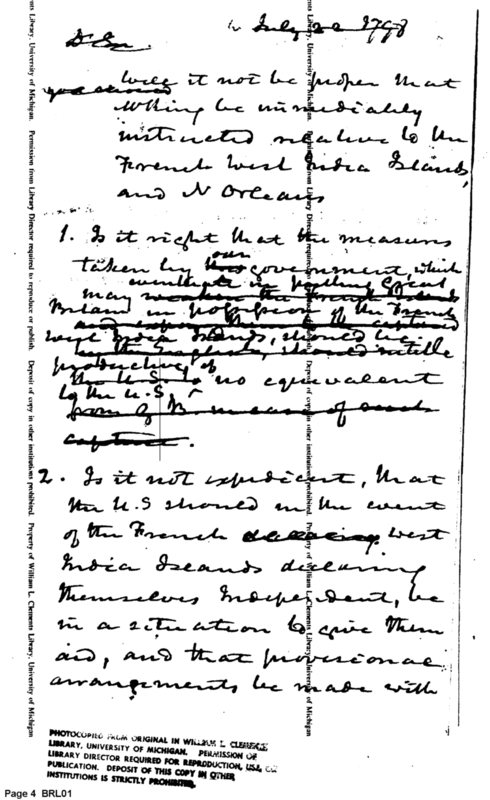 July 22 1798
D Sir.
Will it not be proper that
nothing be immediately
instructed relative to the
French West India Islands,
and N Orleans
1. Is it right that the measures
taken by our government, which
may eventuate in putting Great
Britain in possession of the French
West India Islands, should be
productive of
no equivalent
to the U.S,
2. Is it not expedient, that
the U.S should in the event
of the French West
India Islands declaring
themselves Independent, be
in a situation to give them
aid, and that provisional
arrangements be made with
ments Library, University of Michigan. Permission from Library Director required to reproduce or publish. Deposit of copy in other institutions prohibited. Property of William L. Clements Library, University of Michigan
PHOTOCOPIED FROM ORIGINAL IN WILLIAM L. CLEMENTS
LIBRARY, UNIVERSITY OF MICHIGAN. PERMISSION OF
LIBRARY DIRECTOR REQUIRED FOR REPRODUCTION, USE, OR
PUBLICATION. DEPOSIT OF THIS COPY IN OTHER
INSTITUTIONS IS STRICTLY PROHIBITED.
Page 4 BRL01